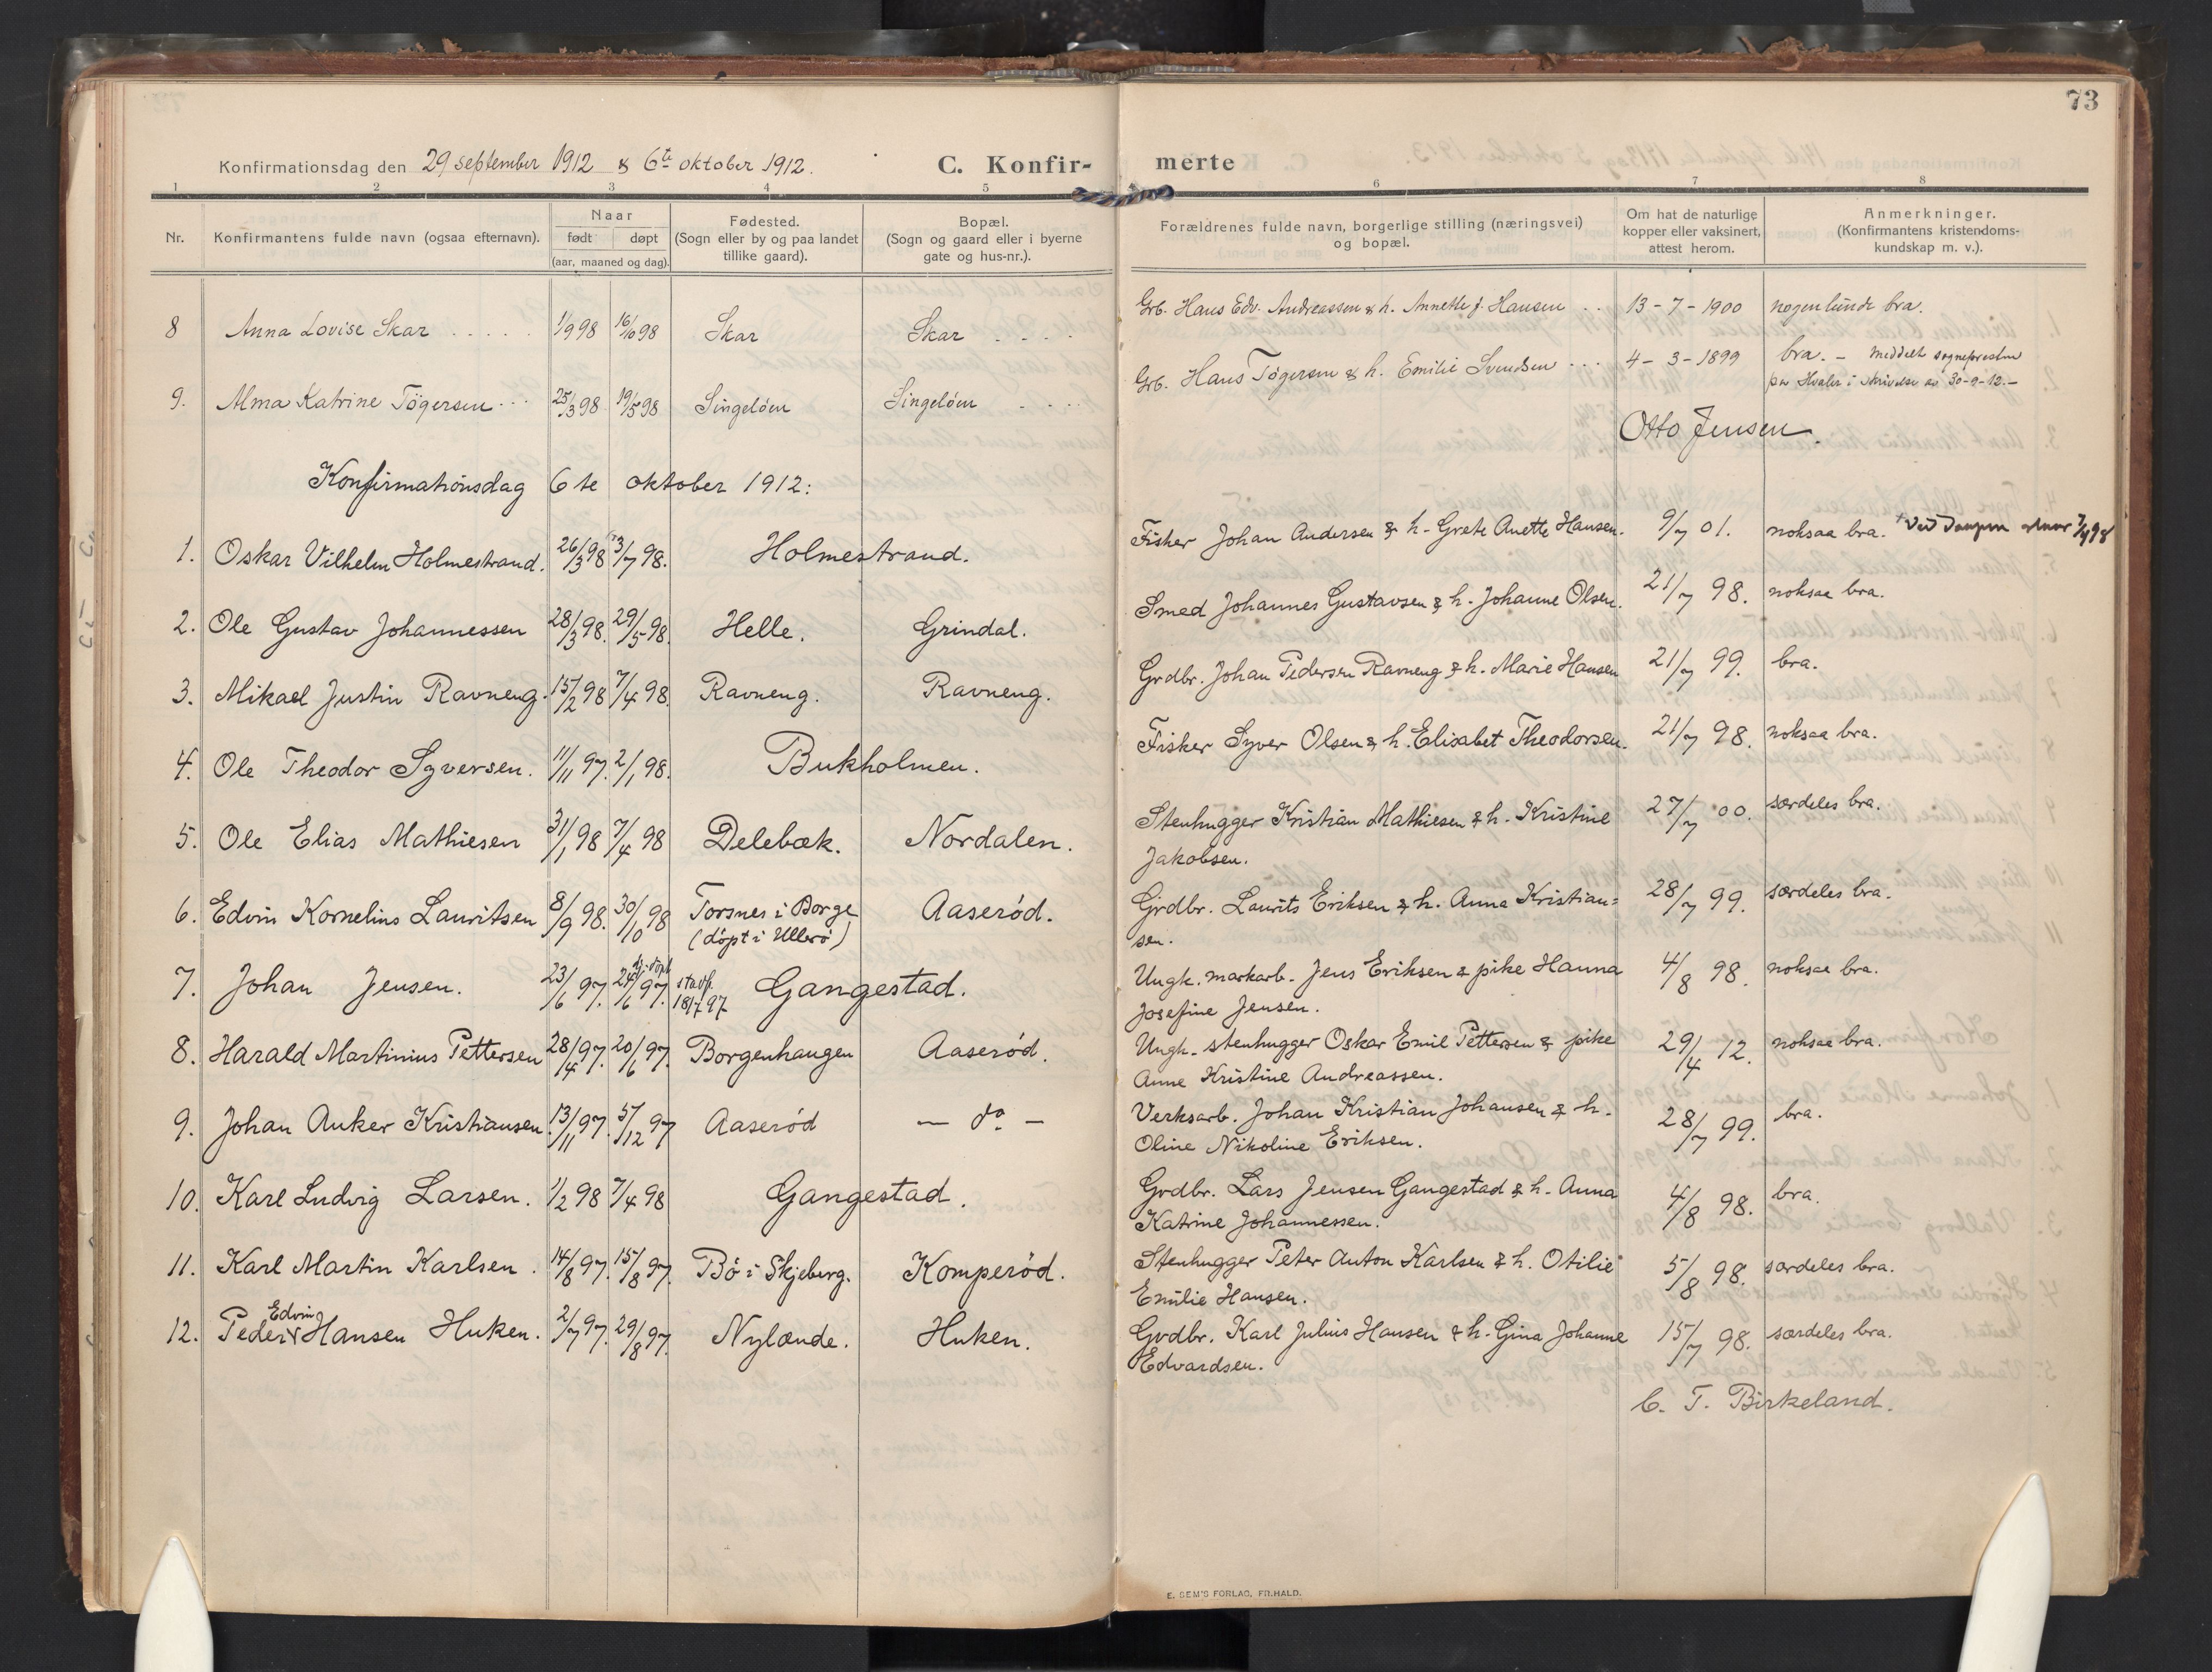 73
Konfirmationsdag den 29 september 1912 & 6te oktober 1912. C. Konfir- merte
1 2 3 4 5 6 7 8
Nr. Konfirmantens fulde navn (ogsaa efternavn). Naar født døpt (aar, maaned og dag). Fødested. (Sogn eller by og paa landet tillike gaard). Bopæl. (Sogn og gaard eller i byerne gate og hus-nr.). Forældrenes fulde navn, borgerlige stilling (næringsvei) og bopæl. Om hat de naturlige kopper eller vaksinert, attest herom. Anmerkninger. (Konfirmantens kristendoms- kundskap m. v.).
8 Anna Lovise Skar 1/9 98 16/10 98 Skar Skar Grb. Hans Edv. Andreassen & h. Annette J. Hansen 13-7-1900 nogenlunde bra.
9. Alma Katrine Tögersen 25/3 98 19/5 98 Singelöen Singelöen Grb. Hans Tögersen & h. Emilie Svendsen 4-3-1899 bra. - Meddelt sognepresten
paa Hvaler i skrivelse av 30-9-12.-
Otto Jensen.
Konfirmationsdag 6te oktober 1912:
1. Oskar Vilhelm Holmestrand. 26/3 98 3/7 98. Holmestrand. Fisker Johan Andersen & h. Grete Anette Hansen. 9/7 01. noksaa bra. Ved Daapen 7/4 98
2. Ole Gustav Johannessen 28/3 98. 29/5 98. Helle. Grindal. Smed Johannes Gustavsen & h. Johanne Olsen. 21/7 98. noksaa bra.
3. Mikael Justin Ravneng. 15/2 98 7/4 98. Ravneng. Ravneng. Grdbr. Johan Pedersen Ravneng & h. Marie Hansen 21/7 99. bra.
4. Ole Theodor Syversen. 11/11 97. 2/1 98. Bukholmen. Fisker Syver Olsen & h. Elisabet Theodorsen. 21/7 98. noksaa bra.
5. Ole Elias Mathiesen 31/1 98 7/4 98 Delebæk. Nordalen. Stenhugger Kristian Mathiesen & h. Kristine 27/7 00. særdeles bra.
Jakobsen.
6. Edvin Kornelius Lauritsen 8/9 98. 30/10 98 Torsnes i Borge Aaseröd. Grdbr. Laurits Eriksen & h. Anna Kristian= 28/7 99. særdeles bra.
(döpt i Ullerö) sen.
7. Johan Jensen. 23/6 97. hj. döpt 24/6 97. stadf. 18/7 97 Gangestad. Ungk. markarb. Jens Eriksen & pike Hanna 4/8 98. noksaa bra.
Josefine Jensen.
8. Harald Martinius Pettersen 28/4 97. 20/6 97. Borgenhaugen Aaseröd. Ungk. stenhugger Oskar Emil Pettersen & pike 29/4 12. noksaa bra.
Anne Kristine Andreassen.
9. Johan Anker Kristiansen. 13/11 97. 5/12 97 Aaseröd — do — Verksarb. Johan Kristian Johansen & h. 28/7 99. bra.
Oline Nikoline Eriksen.
10. Karl Ludvig Larsen. 1/2 98 7/4 98 Gangestad. Grdbr. Lars Jensen Gangestad & h. Anna 4/8 98. bra.
Katrine Johannessen.
11. Karl Martin Karlsen. 14/8 97. 15/8 97. Bö i Skjeberg. Komperöd. Stenhugger Peter Anton Karlsen & h. Otilie 5/8 98. særdeles bra.
Emilie Hansen.
12. Peder Edvin Hansen Huken. 2/7 97. 29/8 97. Nylænde. Huken. Grdbr. Karl Julius Hansen & h. Gina Johanne 15/7 98. særdeles bra.
Edvardsen.
C. T. Birkeland.
E. SEM'S FORLAG, FR.HALD.